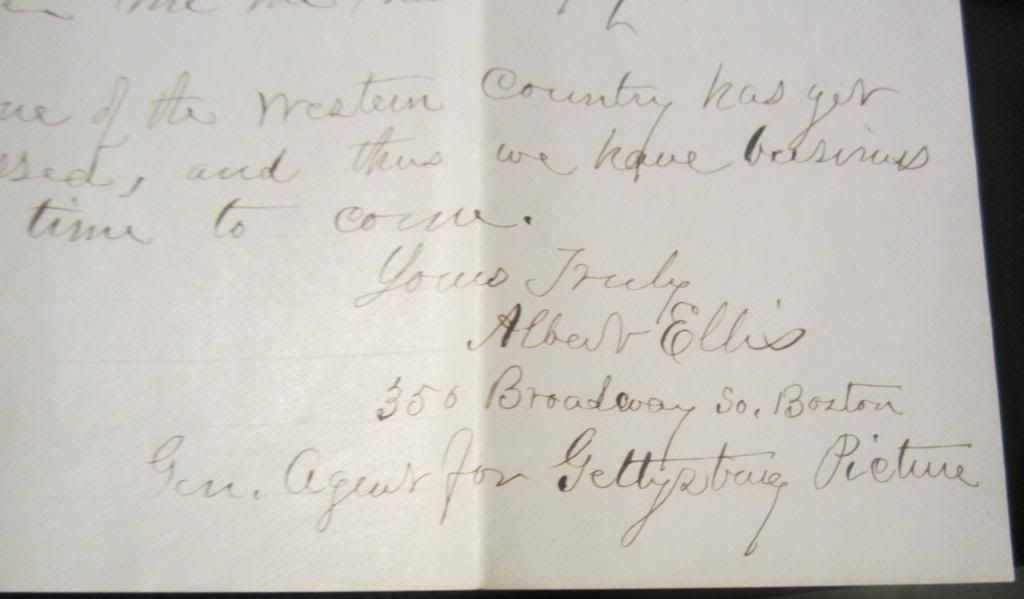 of the Western Country has yet
and thus we have business
time to come.
Yours Truly
Albert Ellis
350 Broadway So. Boston
Gen. Agent for Gettysburg Picture